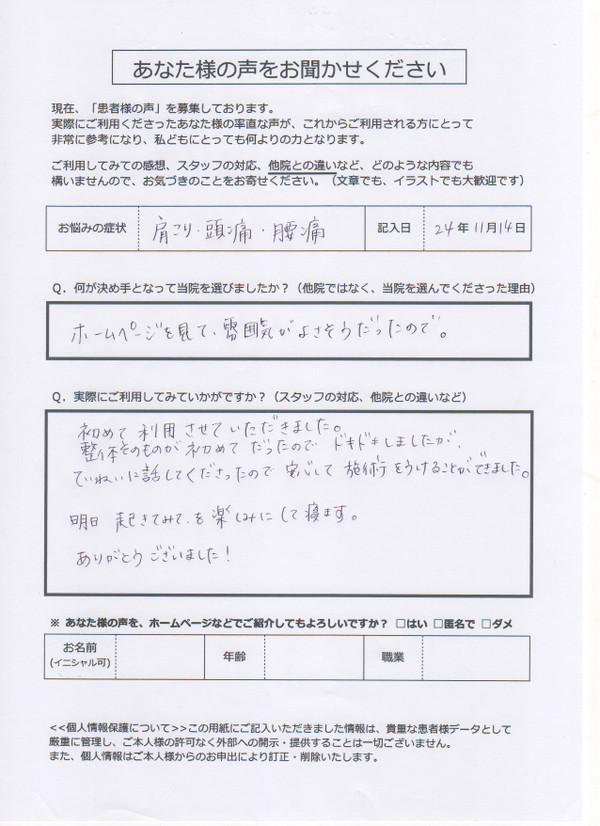 あなた様の声をお聞かせください
現在、「患者様の声」を募集しております。
実際にご利用くださったあなた様の率直な声が、これからご利用される方にとって
非常に参考になり、私どもにとっても何よりの力となります。
ご利用してみての感想、スタッフの対応、他院との違いなど、どのような内容でも
構いませんので、お気づきのことをお寄せください。（文章でも、イラストでも大歓迎です）
お悩みの症状 肩こり・頭痛・腰痛 記入日 24年 11月14日
Q．何が決め手となって当院を選びましたか？（他院ではなく、当院を選んでくださった理由）
ホームページを見て、雰囲気がよさそうだったので。
Q．実際にご利用してみていかがですか？（スタッフの対応、他院との違いなど）
初めて利用させていただきました。
整体そのものが初めてだったのでドキドキしましたが、
ていねいに話してくださったので安心して施術をうけることができました。
明日起きてみてを楽しみにして寝ます。
ありがとうございました！
※ あなた様の声を、ホームページなどでご紹介してもよろしいですか？ □はい □匿名で □ダメ
お名前
(イニシャル可)
年齢
職業
<<個人情報保護について>>この用紙にご記入いただきました情報は、貴重な患者様データとして
厳重に管理し、ご本人様の許可なく外部への開示・提供することは一切ございません。
また、個人情報はご本人様からのお申出により訂正・削除いたします。